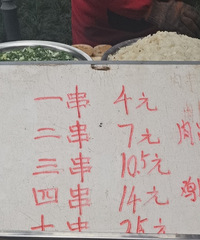 一串 4元
二串 7元 肉
三串 10.5元
四串 14元 鸡
十串 35元